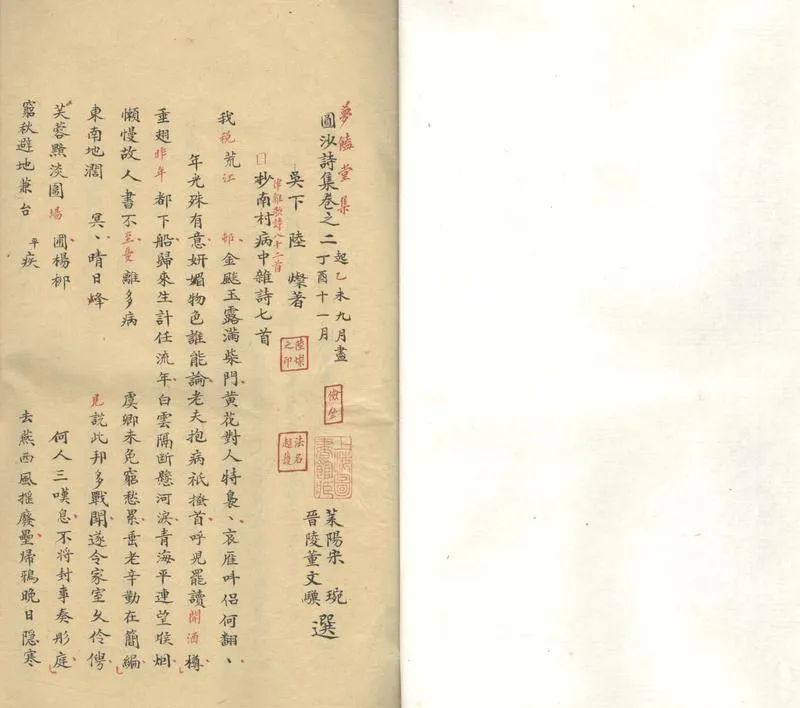 夢鱸堂集
圓沙詩集卷之二 起乙未九月盡丁酉十一月
吳下 陸 燦著
萊陽宋 琬
晉陵董文驥
選
陸燦之印
法名超護
律雜歌詩八十二首
抄南村病中雜詩七首
我 税荒江 邨金颷玉露滿柴門黃花對人特裊、哀雁叫侶何翻、
年光殊有意妍媚物色誰能論老夫抱病祇搔首呼児罷讀開酒樽
垂翅昨年都下船歸來生計任流年白雲隔斷懸河淚青海平連望堠烟
懶慢故人書不至憂離多病 虞卿未免窮愁累垂老辛勤在簡編
東南地濶 冥、晴日烽 見説此邦多戰聞遂令家室久伶俜
芙蓉黯淡圍場圃楊柳 何人三嘆息不將封事奏彤庭
窮秋避地兼台 疾 去燕西風摇廢壘帰鴉晚日隠寒